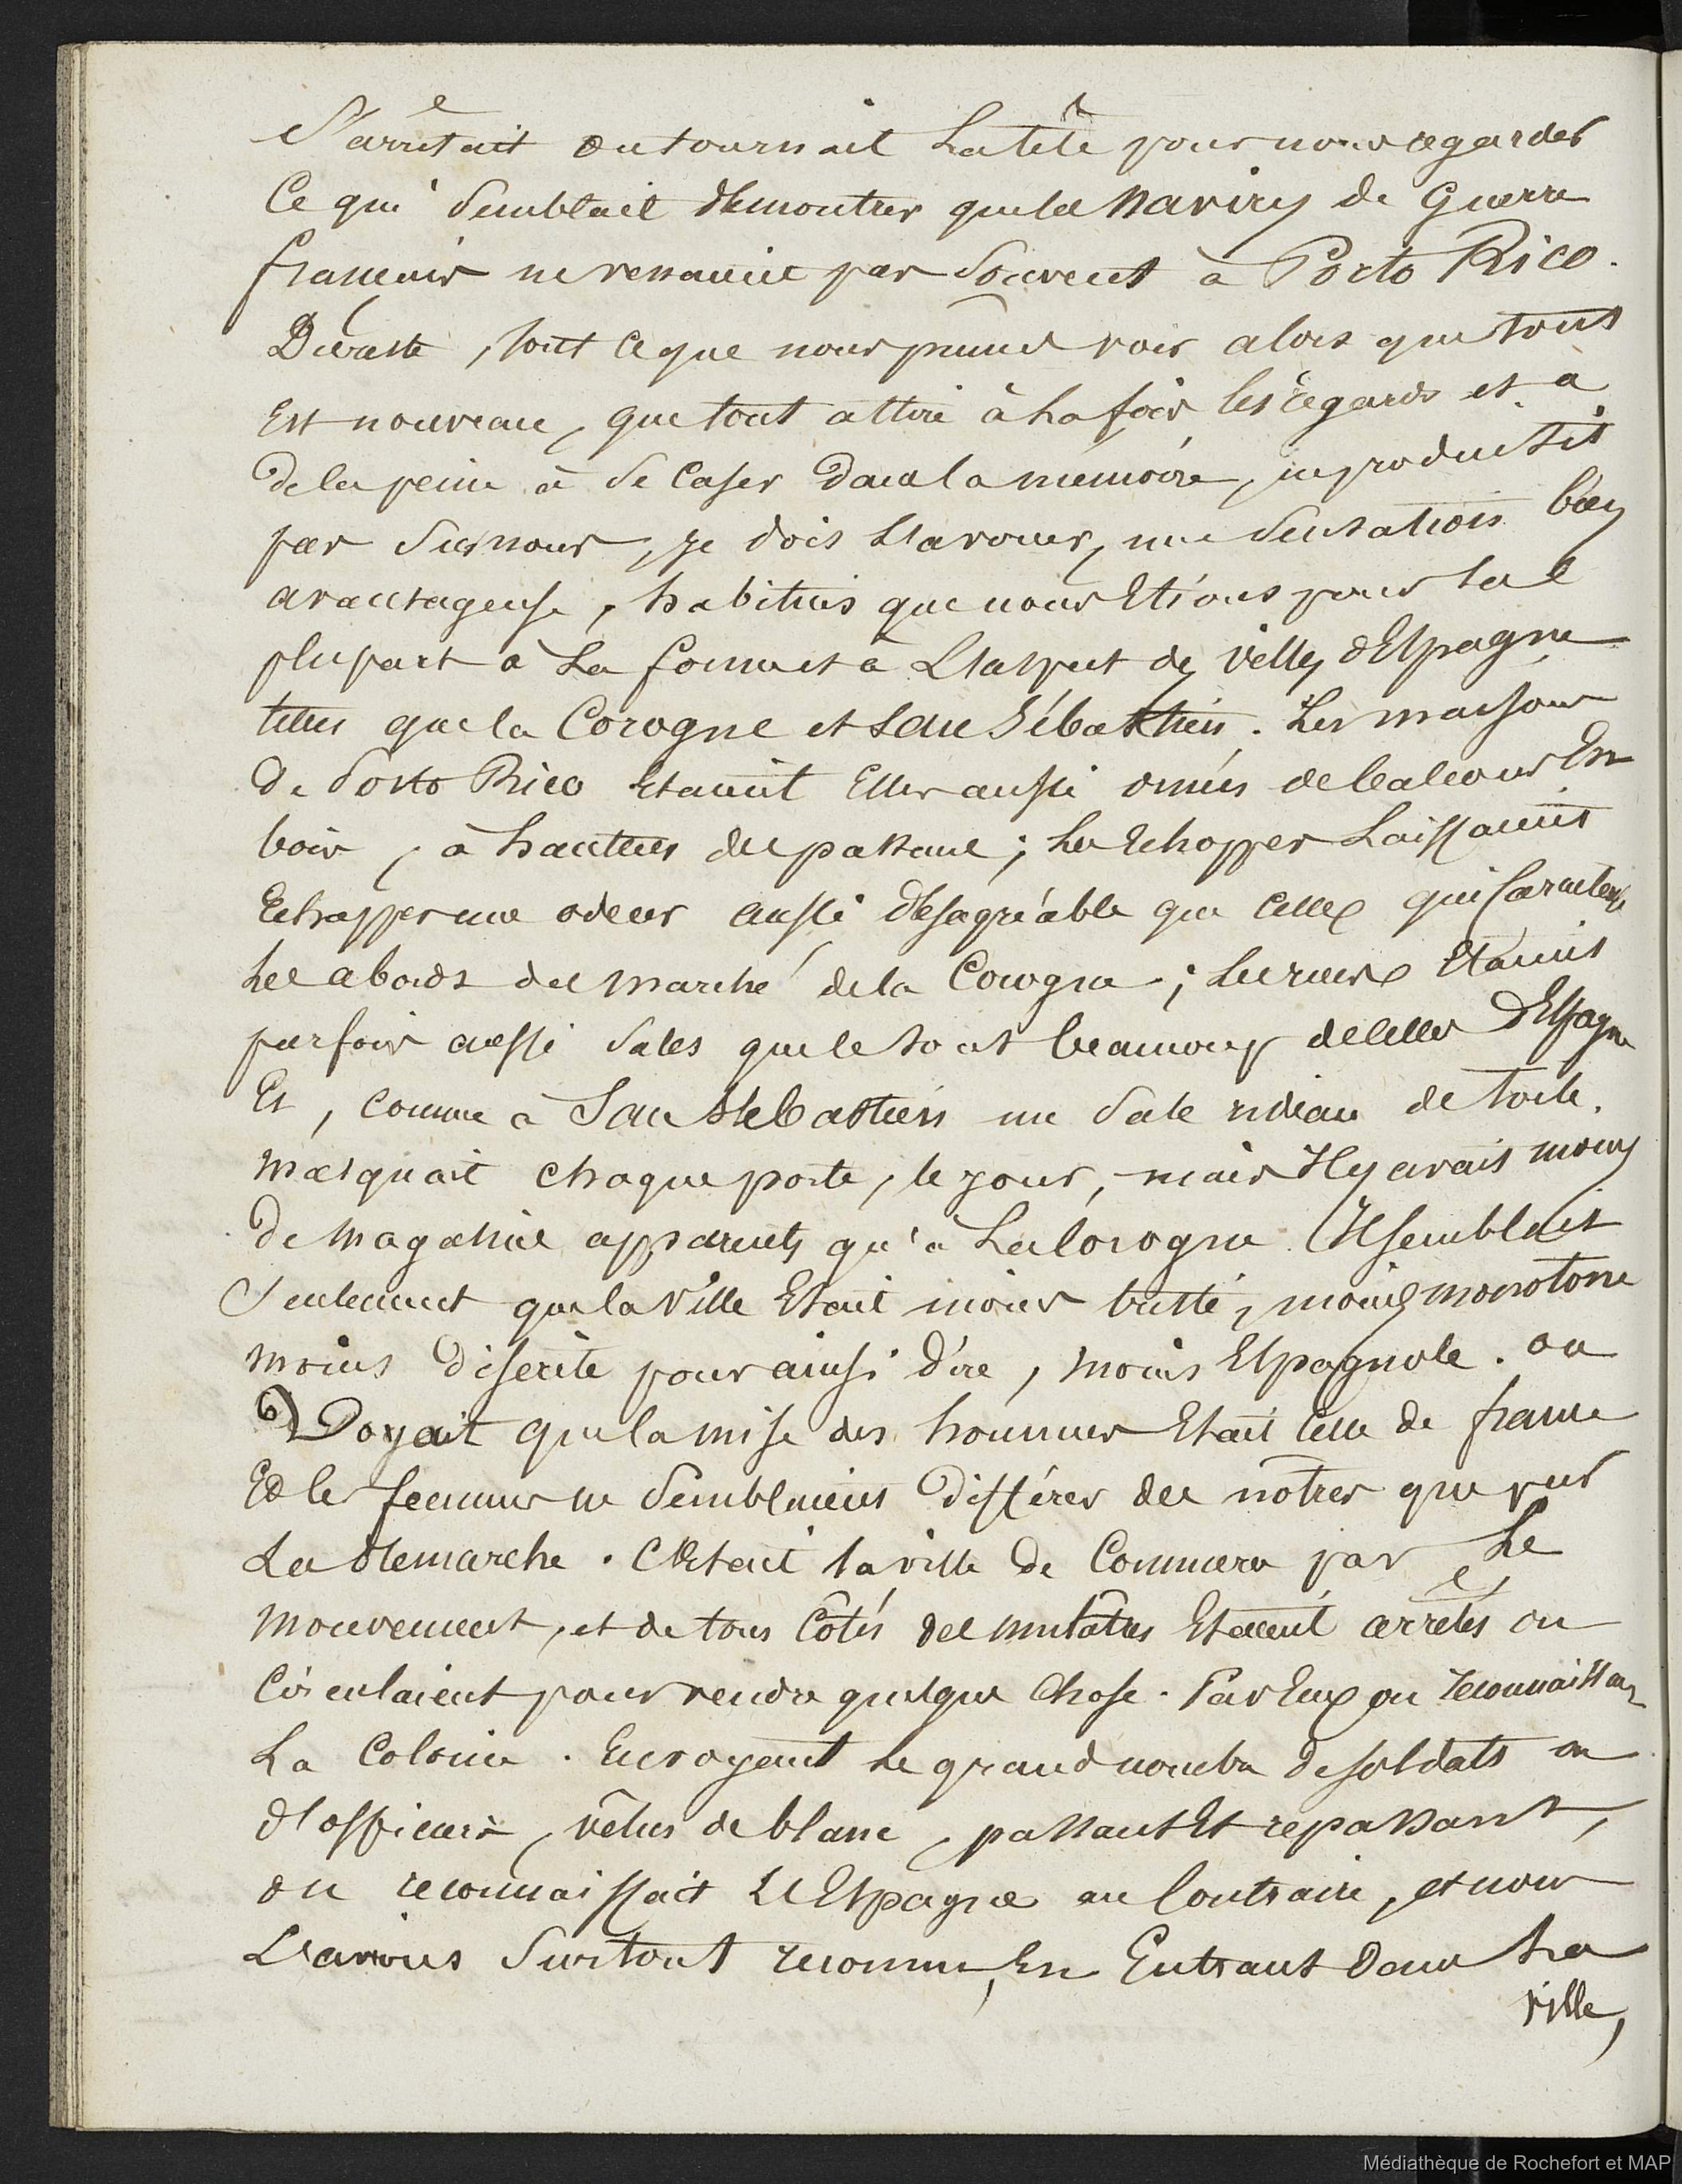 S'arrêtait ou tournait La tête pour nous regarder
Ce qui semblait démontrer que les navires de Guerre
français ne venaient pas souvent à Porto Rico.
Du reste, tout ce que nous pûmes voir alors que tout
Est nouveau, que tout attire à La fois les regards et a
De la peine à se Caser dans la mémoire, ne produisit
pas sur nous, je dois L'avouer, une sensation bien
avantageuse, habitués que nous Etions pour la
plupart à La forme et à L'aspect des villes d'Espagne
telles que la Corogne et San Sébastien. Les maisons
De Porto Rico Etaient Elles aussi ornées de balcons En
bois, à hauteur du passant; Les Echoppes Laissaient
Echapper une odeur aussi désagréable que Celle qui Caractérise
Les abords du marché de la Corogne; Les rues Etaient
parfois aussi sales que le sont beaucoup de celles d'Espagne
Et, comme à San Sébastien un sale rideau de toile
masquait chaque porte, le jour, mais Il y avait moins
De magasins apparents qu'à La Corogne. Il semblait
Seulement que la ville Etait moins triste, moins monotone
moins discrète pour ainsi dire, moins Espagnole. On
6) Voyait que la mise des hommes Etait celle de france
Et les femmes ne semblaient différer des nôtres que par
La démarche. C'Etait la ville de Commerce par Le
mouvement, et de tous Côtés des mulâtres Etaient arrêtés ou
Circulaient pour vendre quelque chose. Par Eux on reconnaissait
La Colonie. En voyant le grand nombre de soldats ou
d'officiers, vêtus de blanc, passant Et repassant,
on reconnaissait L'Espagne au Contraire, et nous
L'avons surtout reconnu, En Entrant dans La
ville,
Médiathèque de Rochefort et MAP